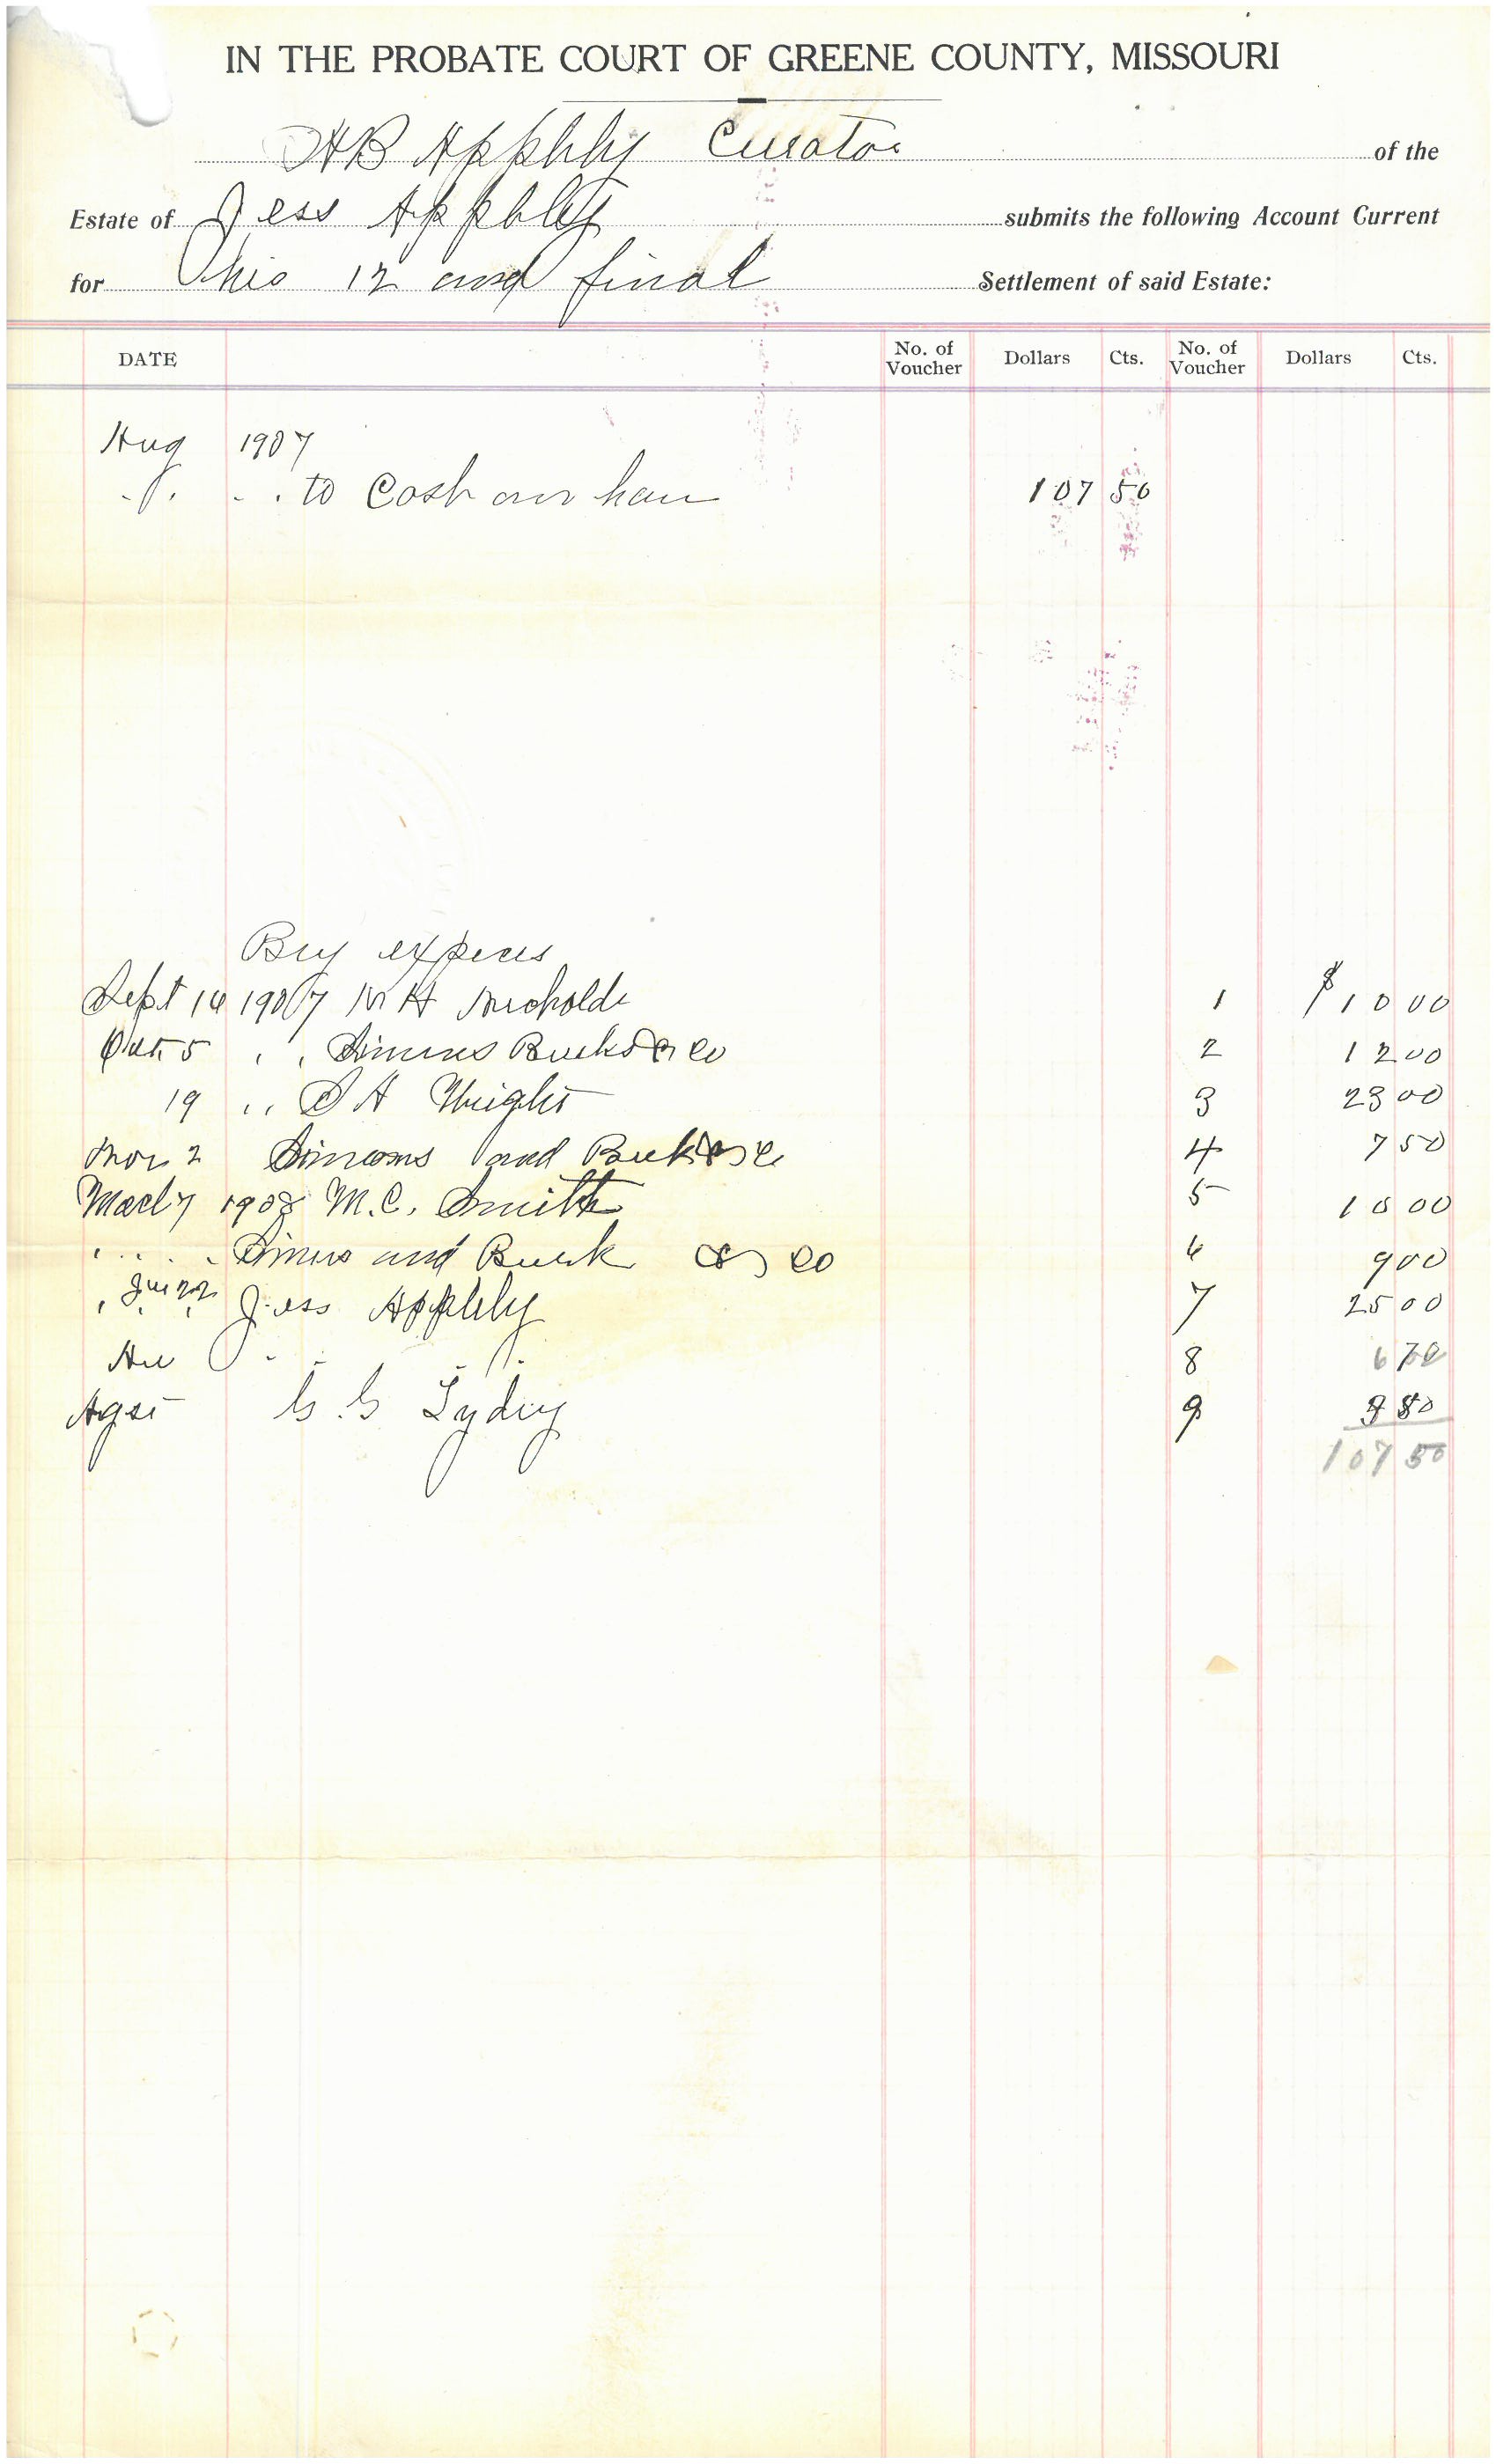 IN THE PROBATE COURT OF GREENE COUNTY, MISSOURI
HB Appleby Curator of the
Estate of Jess Appleby submits the following Account Current
for this 12 and final Settlement of said Estate:
DATE No. of Voucher Dollars Cts. No. of Voucher Dollars Cts.
Aug 1907
" " to Cash on han 107 50
By expces
Sept 14 1907 1 $10 00
Oct 5 " " 2 12 00
19 " " S H Wright 3 23 00
Nov 2 Simmons and 4 7 50
1908 M.C. Smith 5 10 00
" " " and Buck & co 6 9 00
" " " Jess Appleby 7 25 00
" " " 8
G. G. Lydy 9
107 50